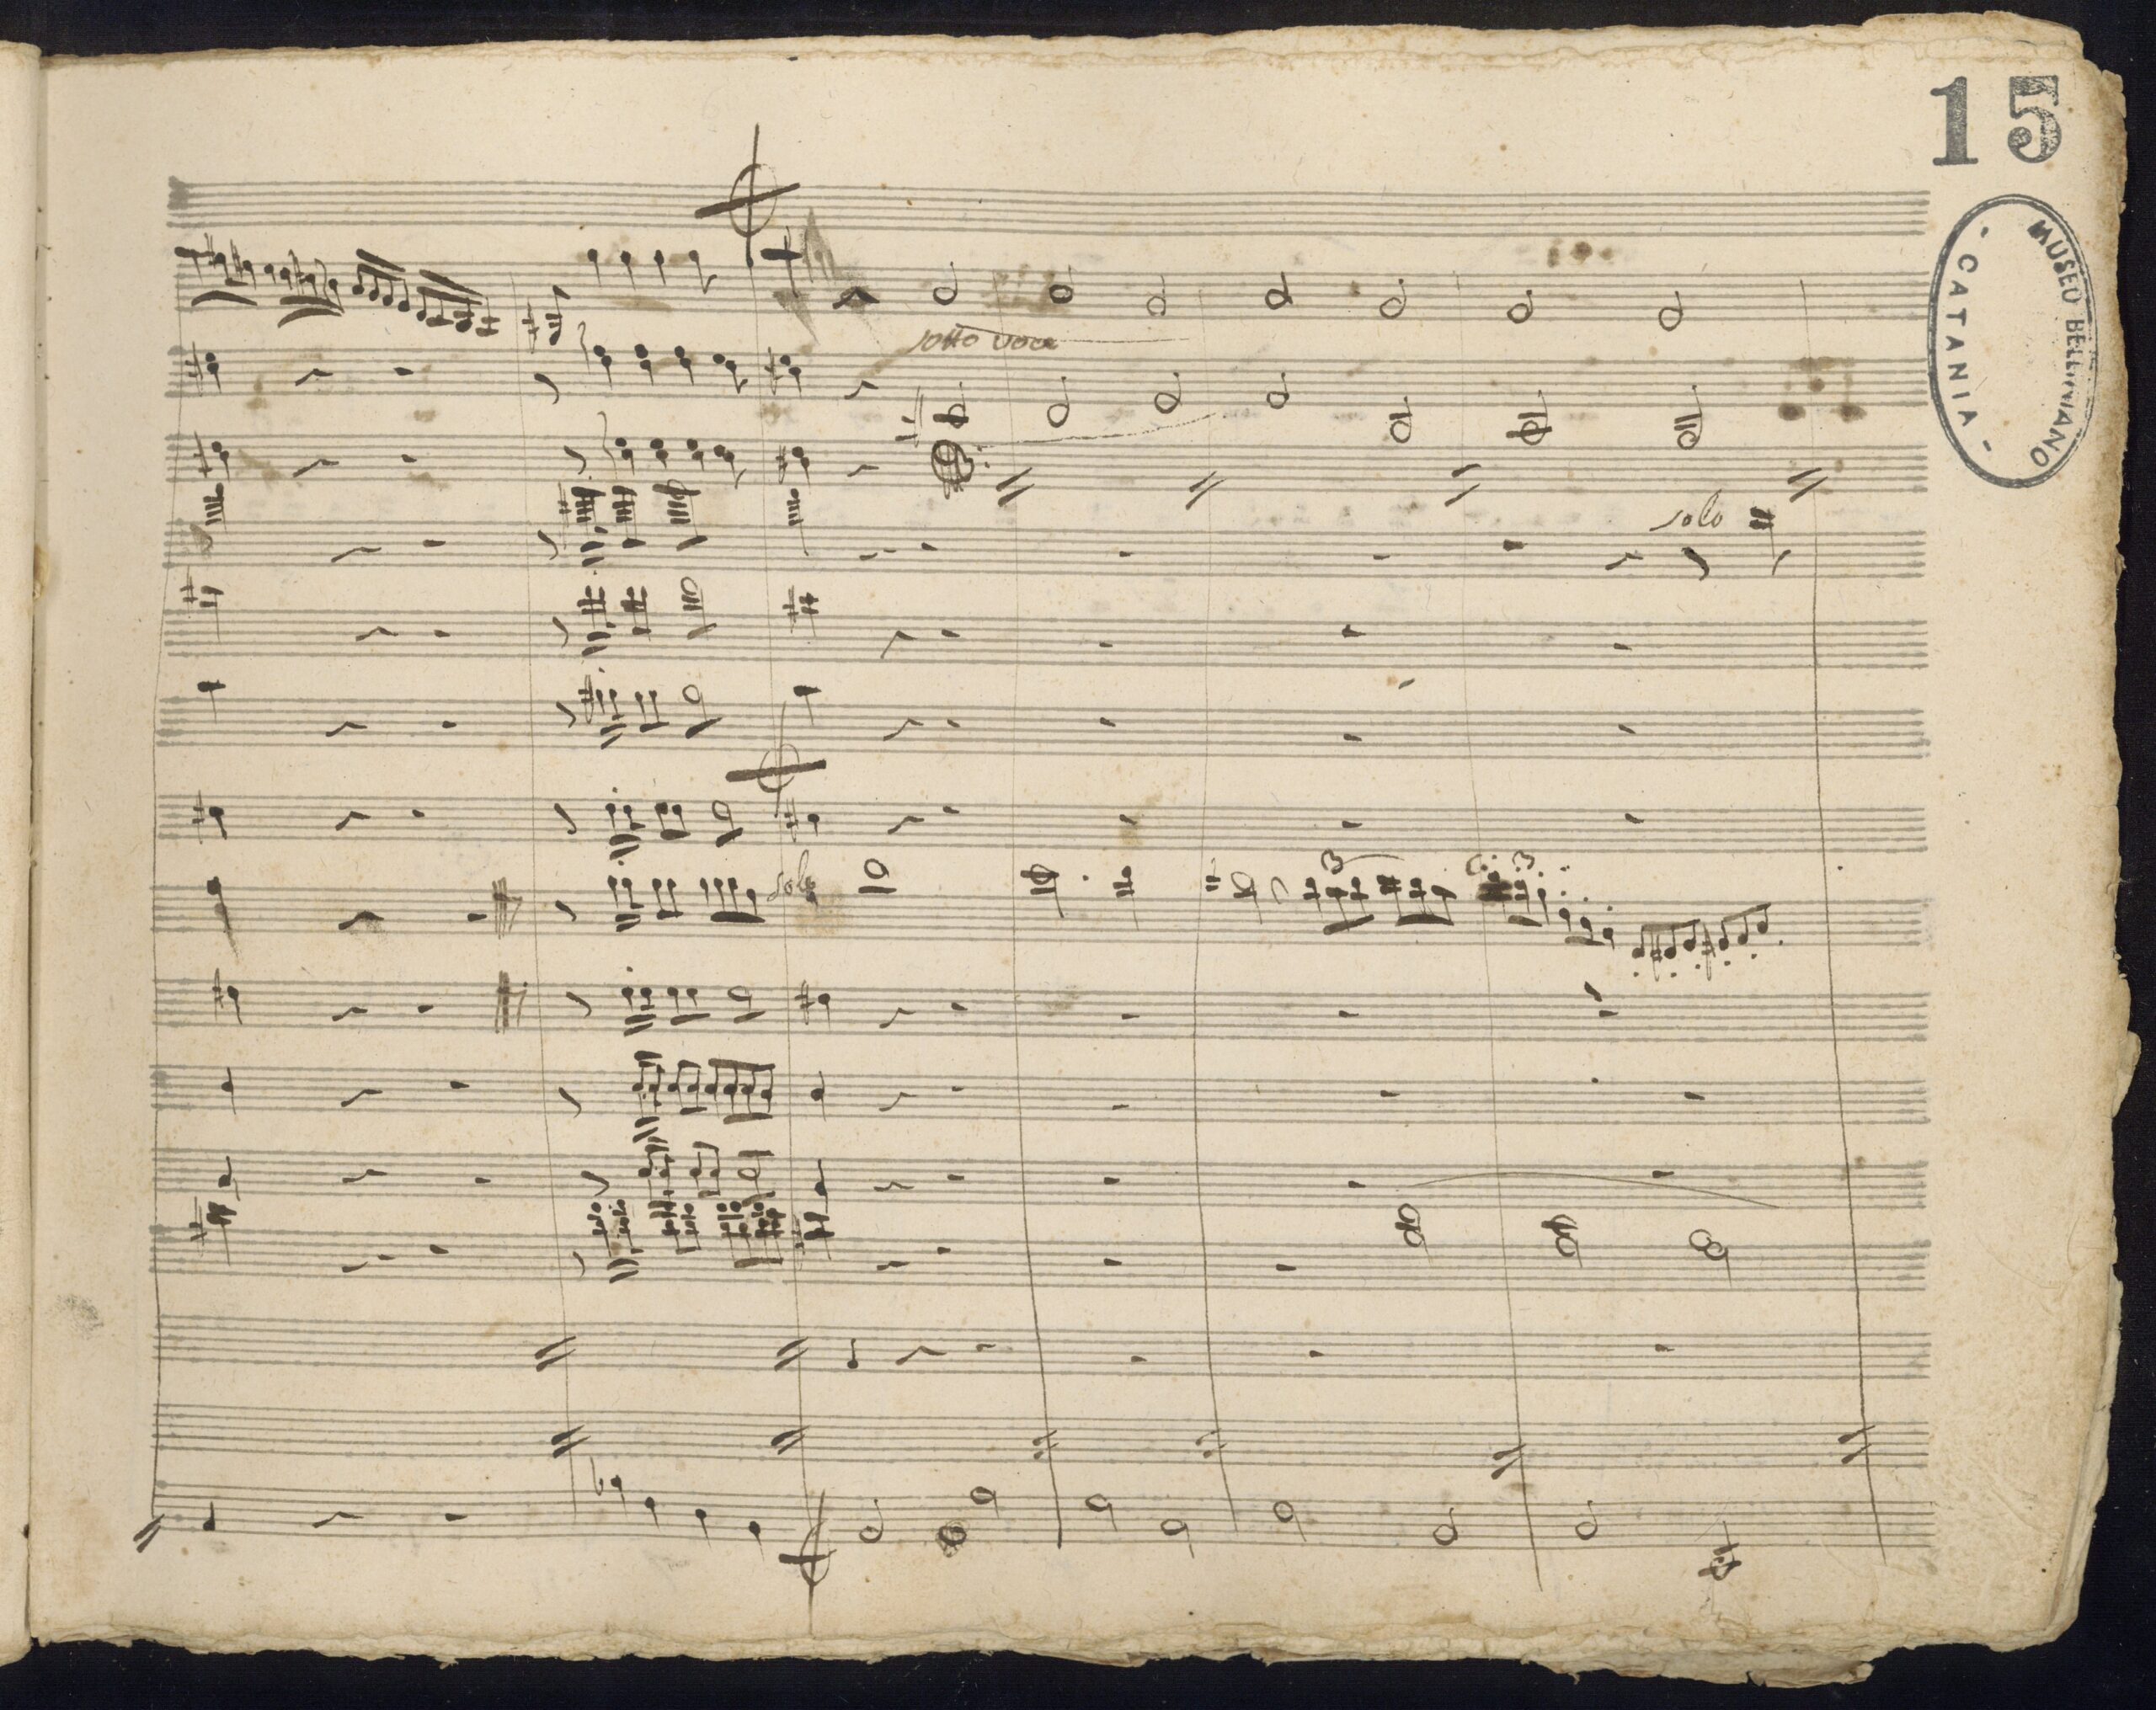 15
MUSEO BELLINIANO
- CATANIA -
sotto voce
solo
solo
3 3